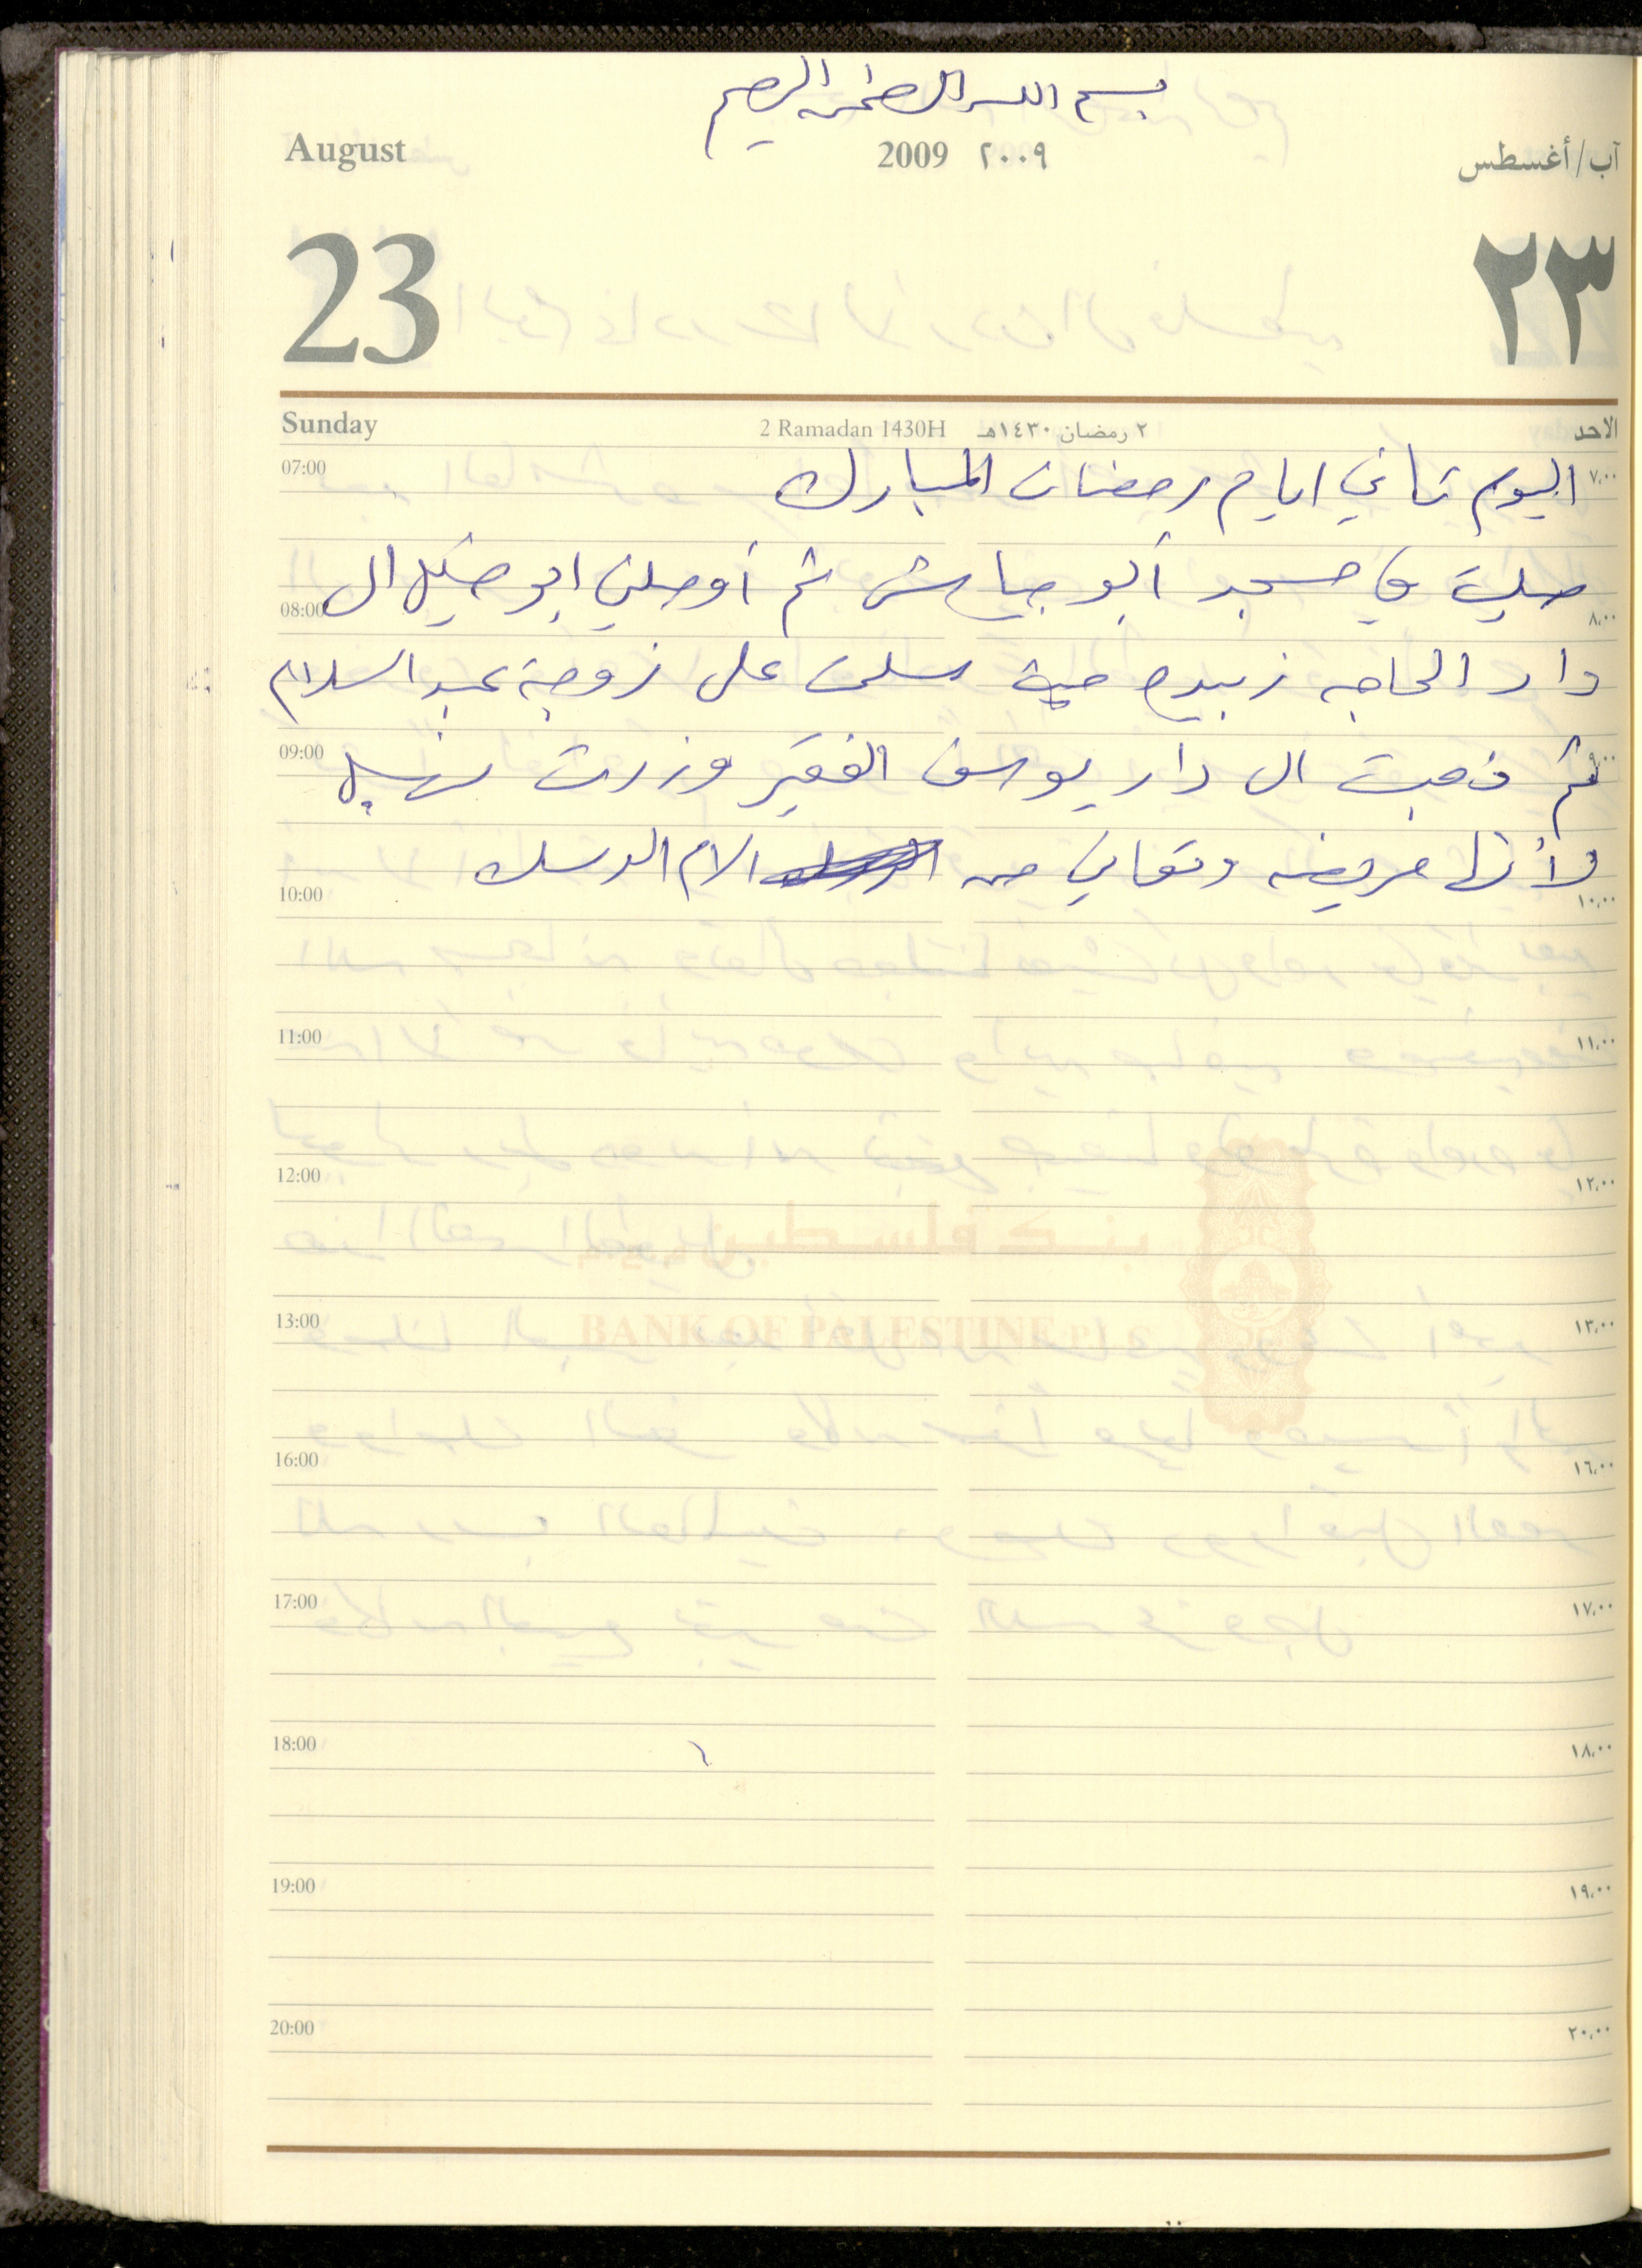 بسم الله الرحمن الرحيم
August 2009 ٢٠٠٩ آب/أغسطس
23 ٢٣
Sunday 2 Ramadan 1430H ٢ رمضان ١٤٣٠هـ الاحد
07:00 اليوم ثاني ايام رمضان المبارك ٧,٠٠
صليت في مسجد أبو جياش ثم أوصلني ابو ال
08:00 ٨,٠٠
دار الحاجه زبيده حيث سلمت على زوجة عبد السلام
09:00 ثم ذهبت الى دار يوسف الفقير وزرت ٩,٠٠
لأنها مريضه وتعاني من الام الدسك
10:00 ١٠,٠٠
11:00 ١١,٠٠
12:00 ١٢,٠٠
بنك فلسطين
13:00 ١٣,٠٠
BANK OF PALESTINE
16:00 ١٦,٠٠
17:00 ١٧,٠٠
18:00 ١٨,٠٠
19:00 ١٩,٠٠
20:00 ٢٠,٠٠